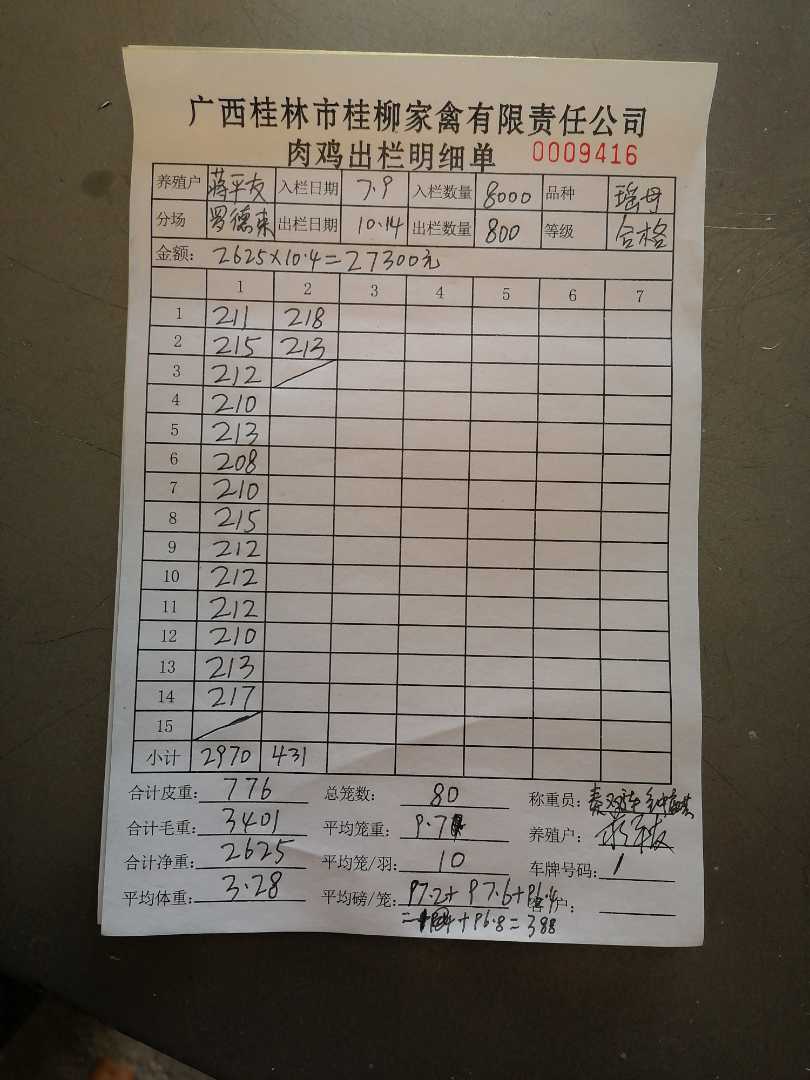 广西桂林市桂柳家禽有限责任公司
肉鸡出栏明细单 0009416
养殖户 蒋平友 入栏日期 7.9 入栏数量 8000 品种 瑶母
分场 罗德来 出栏日期 10.14 出栏数量 800 等级 合格
金额: 2625×10.4=27300元
1 2 3 4 5 6 7
1 211 218
2 215 213
3 212
4 210
5 213
6 208
7 210
8 215
9 212
10 212
11 212
12 210
13 213
14 217
15
小计 2970 431
合计皮重: 776 总笼数: 80 称重员:
合计毛重: 3401 平均笼重: 9.7 养殖户:
合计净重: 2625 平均笼/羽: 10 车牌号码: 1
平均体重: 3.28 平均磅/笼: 97.2+97.6+96.4 客户:
+96.8=388